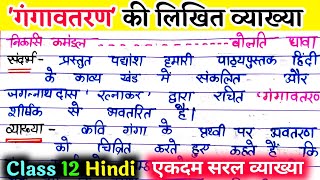 'गंगावतरण' की लिखित व्याख्या
निकसि कमंडल ........ बोलति धावा
संदर्भ- प्रस्तुत पद्यांश हमारी पाठ्यपुस्तक हिंदी
के काव्य खंड में संकलित और
जगन्नाथदास 'रत्नाकर' द्वारा रचित 'गंगावतरण'
शीर्षक से अवतरित है।
व्याख्या- कवि गंगा के पृथ्वी पर अवतरण
को चित्रित करते हुए कहते हैं कि
Class 12 Hindi एकदम सरल व्याख्या